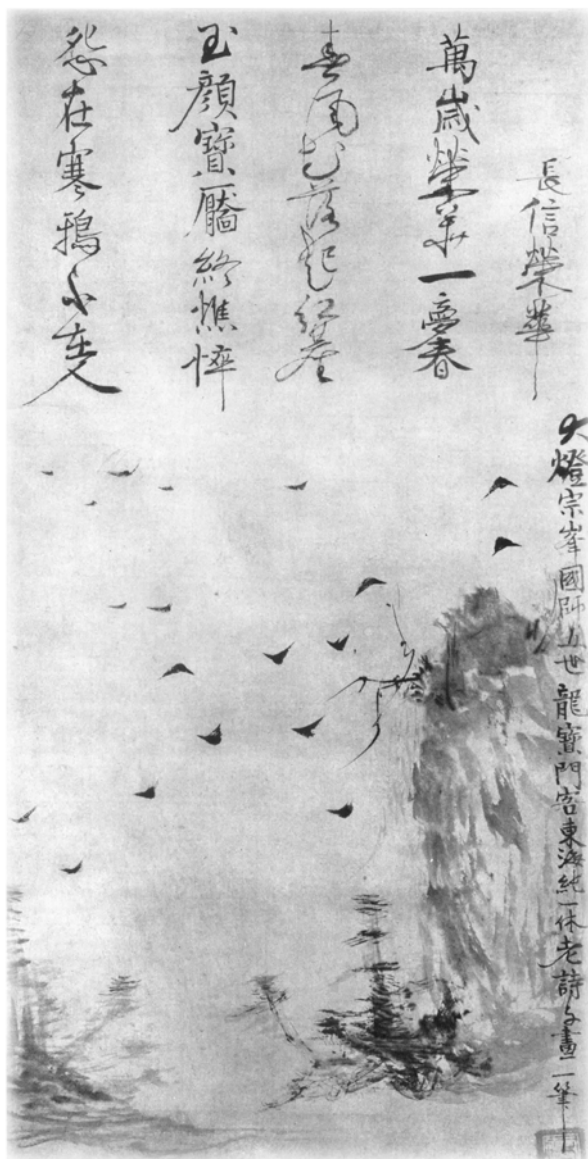 長信榮華
萬歲榮華一夢春
春風花落起紅塵
玉顏寶靨終憔悴
怨在寒鴉不在人
大燈宗峯國師五世龍寶門客東海純一休老詩与畫二筆